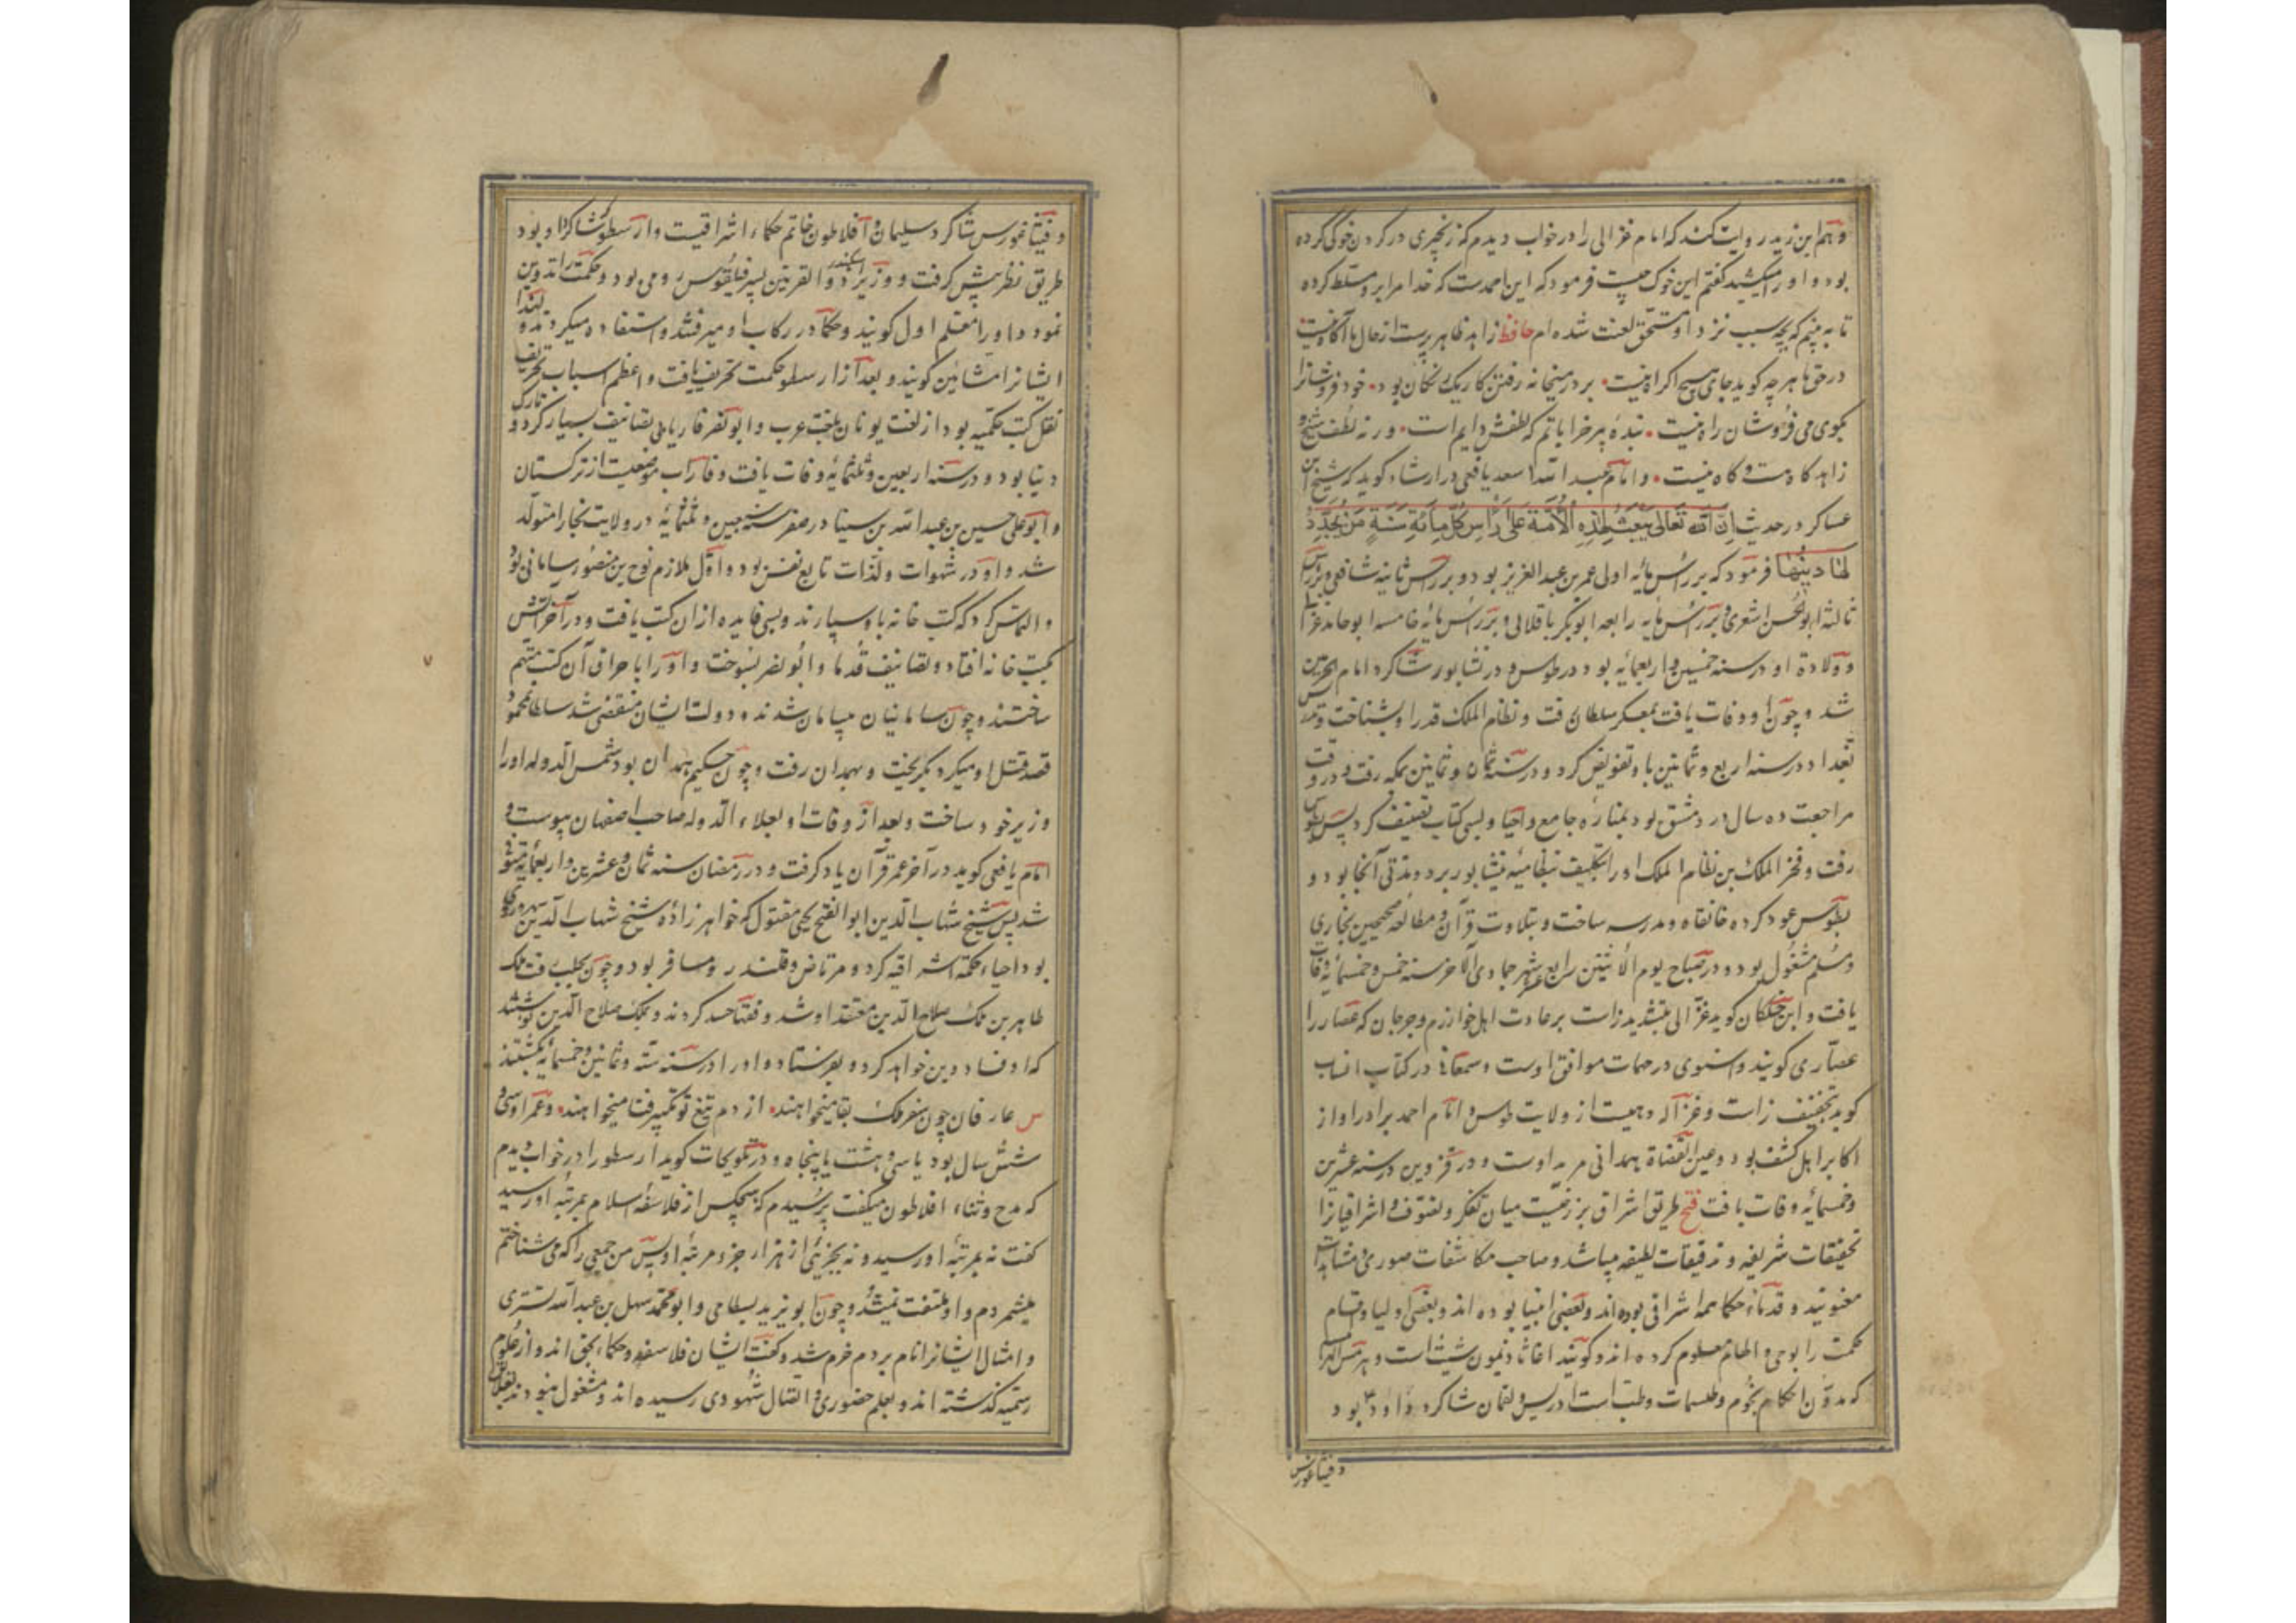 و هم ابن زید روایت کند که امام غزالی را در خواب دیدم که زنجیری در کردن خوکی کرده
بود و او را میکشید کفتم این خوک چیست فرمود که این احمدست که خدا مرا برو مسلط کرده
تا به بینم که بچه سبب نزد او مستحق لعنت شده ام حافظ زاهد ظاهر پرست از حال ما آکاه نیست
در حق ما هر چه کوید جای هیچ اکراه نیست بر در میخانه رفتن کار یک رنکان بود خود فروشانرا
بکوی می فروشان راه نیست بندهٔ پیر خراباتم که لطفش دایم است ورنه لطف شیخ و
زاهد کاه هست و کاه نیست و امام عبد الله اسعد یافعی در ارشاد کوید که شیخ ابن
عساکر در حدیث اِنَّ اللّٰه تَعٰالی یَبعَثُ لِهٰذِهِ الاُمَّةِ عَلٰی رَأسِ کُلِّ مِائَةِ سَنَةٍ مَن یُجَدِّدُ
لَهٰا دینَهٰا فرمود که بر رأس مائه اولی عمر بن عبد العزیز بود و بر رأس ثانیه شافعی و بر رأس
ثالثه ابو الحسن اشعری و بر رأس مایه رابعه ابو بکر باقلانی و بر رأس مایهٔ خامسه ابو حامد غزالی
و ولادة او در سنه خمسین و اربعمایه بود در طوس و در نشابور شاکرد امام الحرمین
شد و چون او وفات یافت بمعسکر سلطان رفت و نظام الملک قدر او بشناخت و تدریس
بغداد در سنه اربع و ثمانین باو تفویض کرد و در سنه ثمان و ثمانین بمکه رفت و در وقت
مراجعت ده سال در دمشق بود بمنارهٔ جامع و احیا و بسی کتاب تصنیف کرد پس بطوس
رفت و فخر الملک بن نظام الملک او را بتکلیف بنظامیهٔ نیشابور برد و مدتی آنجا بود و
بطوس عود کرده خانقاه و مدرسه ساخت و بتلاوت قرآن و مطالعهٔ صحیحین بخاری
و مسلم مشغول بود و در صباح یوم الاثنین رابع عشر جمادی الآخر سنه خمس و خمسمایه وفات
یافت و ابن خلکان کوید غزالی بتشدید زاست بر عادت اهل خوارزم و جرجان که عصار را
عصّاری کویند و اسنوی در مهمات موافق اوست و سمعانی در کتاب انساب
کوید بتخفیف زاست و غزاله دهیست از ولایت طوس و امام احمد برادر او از
اکابر اهل کشف بود و عین القضاة همدانی مرید اوست و در قزوین در سنه عشرین
و خمسمایه وفات یافت فتح طریق اشراق برزخیست میان تفکر و تصوف و اشراقیانرا
تحقیقات شریفه و تدقیقات لطیفه میباشد و صاحب مکاشفات صوری و مشاهدات
معنویند و قدماء حکما همه اشراقی بوده اند و بعضی انبیا بوده اند و بعضی اولیا و اقسام
حکمت را بوحی و الهام معلوم کرده اند و کویند اغاثاذیمون شیث است و هرمس الهرامسه
که مدوّن احکام نجوم و طلسمات و طبّ است ادریس و لقمان شاکرد داود بود
و فیثاغورس
و فیثاغورس شاکرد سلیمان و افلاطون خاتم حکماء اشراقیست و ارسطو شاکرد او بود
طریق نظر پیش کرفت و وزیر اسکندر ذو القرنین پسر فیلقوس رومی بود و حکمت را تدوین
نمود و او را معلم اول کویند و حکما در رکاب او میرفتند و استفاده میکردند و لهذا
ایشانرا مشائین کویند و بعد از ارسطو حکمت تحریف یافت و اعظم اسباب تحریف
نقل کتب حکمیه بود از لغت یونان بلغت عرب و ابو نصر فاریابی تصانیف بسیار کرد و تارک
دنیا بود و در سنه اربعین و ثلثمائه وفات یافت و فاراب موضعیست از ترکستان
و ابو علی حسین بن عبد الله بن سینا در صفر سنه سبعین و ثلثمائه در ولایت بخارا متولد
شد و او در شهوات و لذات تابع نفس بود و اول ملازم نوح بن منصور سامانی بود
و التماس کرد که کتب خانه باو سپارند و بسی فایده از ان کتب یافت و در آخر آتش
بکتب خانه افتاد و تصانیف قدما و ابو نصر بسوخت و او را باحراق آن کتب متهم
ساختند و چون سامانیان بیسامان شدند و دولت ایشان منقضی شد سلطان محمود
قصد قتل او میکرد بکریخت و بهمدان رفت و چون حکیم همدان بود شمس الدوله او را
وزیر خود ساخت و بعد از وفات او بعلاء الدوله صاحب اصفهان پیوست و
امام یافعی کوید در آخر عمر قرآن یاد کرفت و در رمضان سنه ثمان و عشرین و اربعمایه متوفی
شد پس شیخ شهاب الدین ابو الفتح یحیی مقتول که خواهر زادهٔ شیخ شهاب الدین سهروردی
بود احیاء حکمة اشراقیه کرد و مرتاض و قلندر رو مسافر بود و چون بحلب رفت ملک
ظاهر بن ملک صلاح الدین معتقد او شد و فقها حسد کردند و بملک صلاح الدین نوشتند
که او فساد دین خواهد کرد و بفرستاد و او را در سنه ستة و ثمانین و خمسمائه بکشتند
س عارفان چون سفر ملک بقا میخواهند از دم تیغ تو تکبیر فنا میخواهند و عمر او سی و
شش سال بود یا سی و هشت یا پنجاه و در تلویحات کوید ارسطو را در خواب دیدم
که مدح و ثناء افلاطون میکفت پرسیدم که هیچکس از فلاسفه اسلام بمرتبهٔ او رسید
کفت نه بمرتبهٔ او رسید و نه بجزئی از هزار جزو مرتبهٔ او پس من جمعی را که می شناختم
میشمردم و او ملتفت نمیشد و چون ابو یزید بسطامی و ابو محمد سهل بن عبد الله تستری
و امثال ایشانرا نام بردم خرم شد و کفت ایشان فلاسفه و حکماء بحق اند و از علوم
رسمیه کذشته اند و بعلم حضوری و اتصال شهودی رسیده اند و مشغول نبودند بعلائق